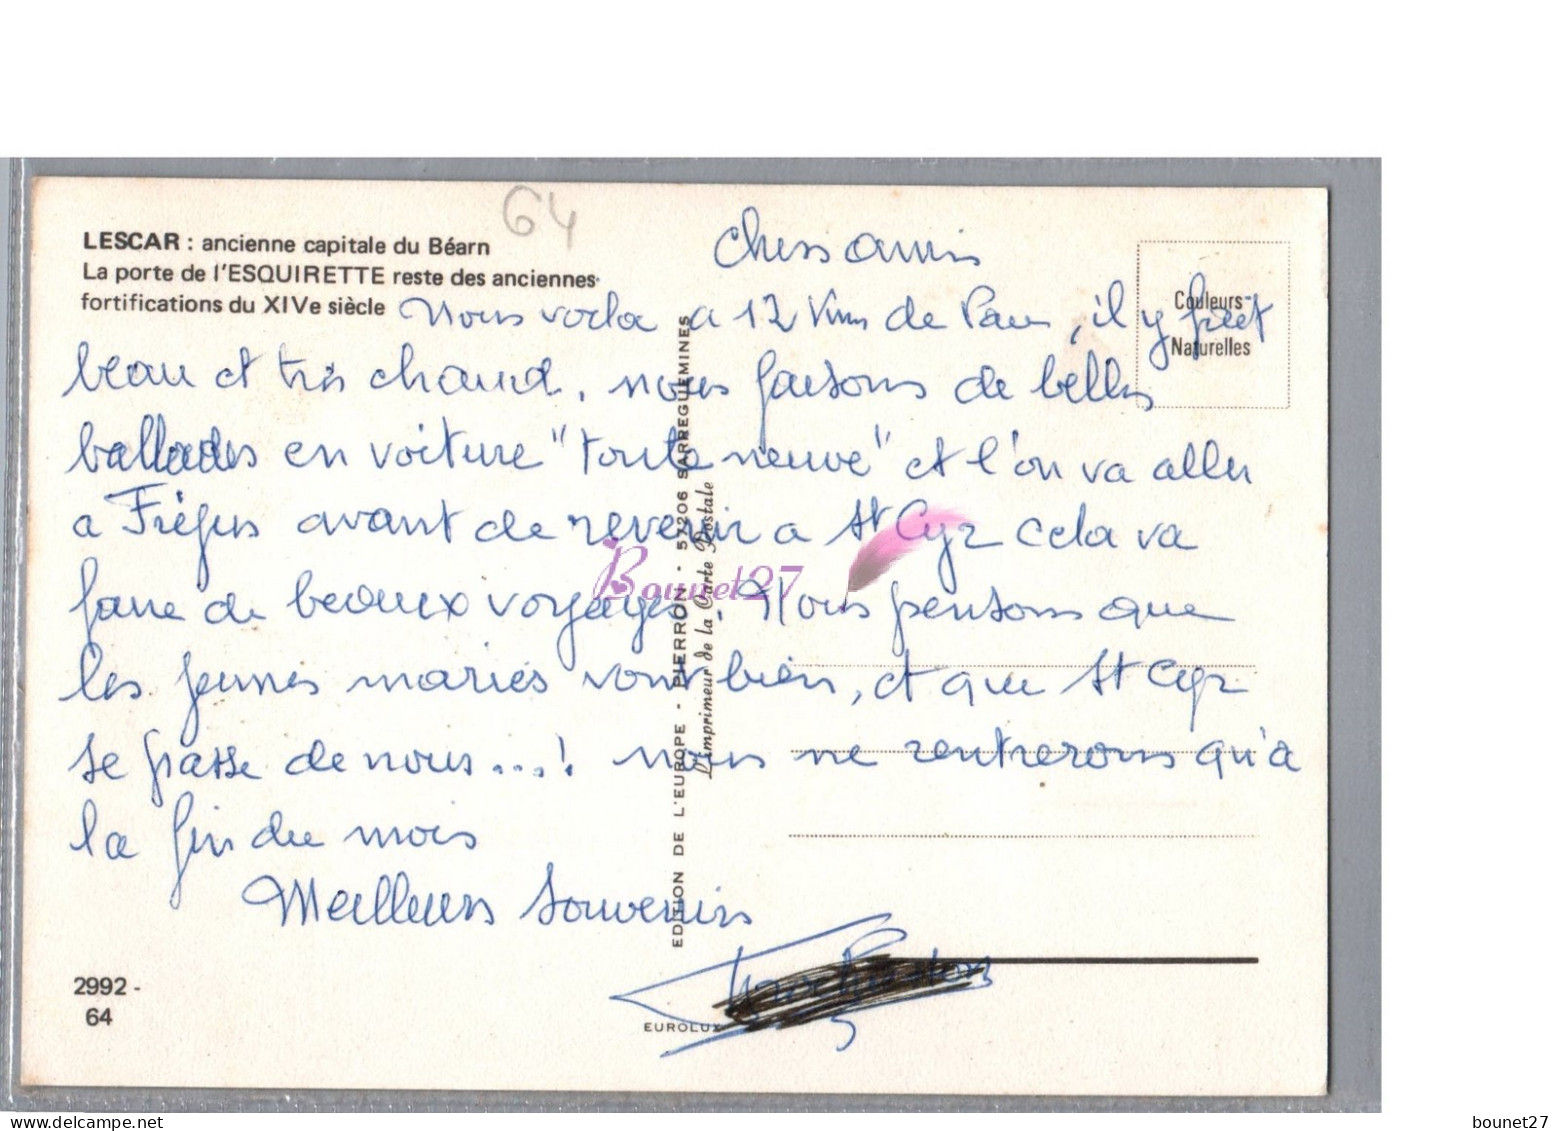 64
LESCAR : ancienne capitale du Béarn
La porte de l'ESQUIRETTE reste des anciennes
fortifications du XIVe siècle
Couleurs
Naturelles
Chers amis
Nous voila a 12 Kms de Pau, il y fait
beau et très chaud. nous faisons de belles
ballades en voiture "toute neuve" et l'on va aller
a Fréjus avant de revenir a St Cyr cela va
faire de beaux voyages. Nous pensons que
les jeunes mariés vont bien, et que St Cyr
se passe de nous...! nous ne rentrerons qu'a
la fin du mois
Meilleurs Souvenirs
2992 -
64
EUROLUX
EDITION DE L'EUROPE - PIERRON - 57206 SARREGUEMINES
L'imprimeur de la Carte Postale
Bounet27
bounet27